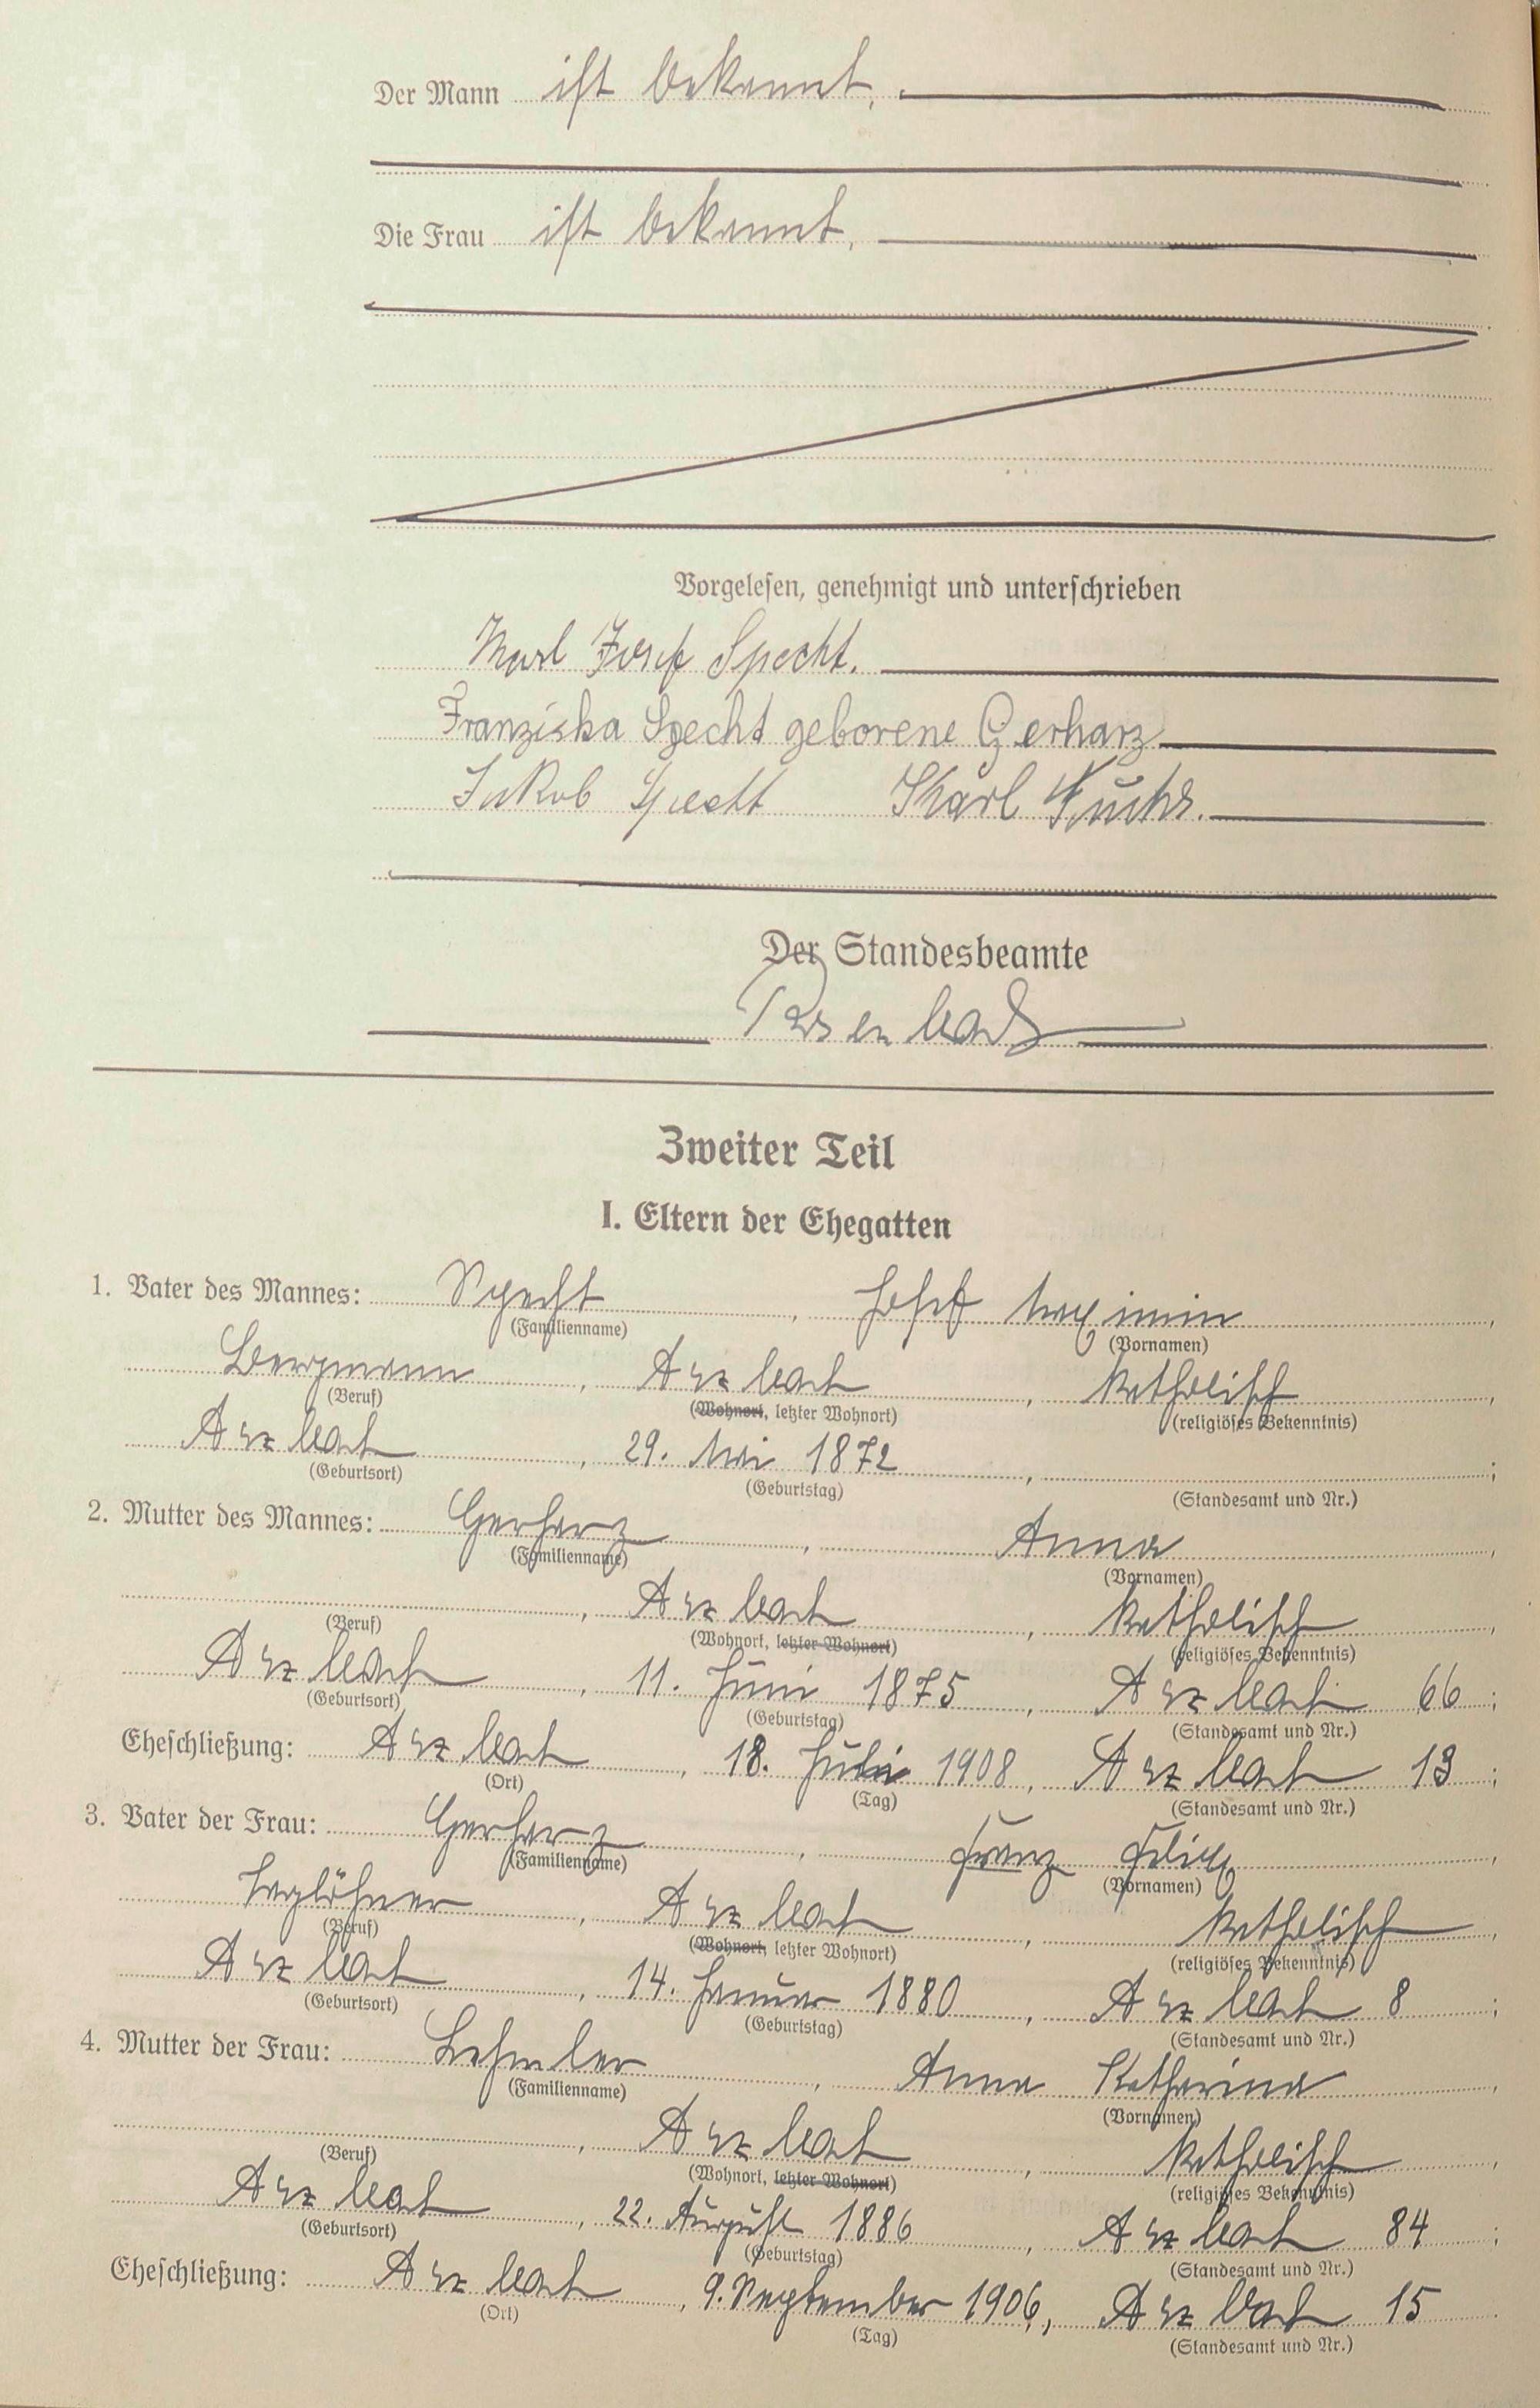 Der Mann ist bekannt,
Die Frau ist bekannt,
Vorgelesen, genehmigt und unterschrieben
Karl Josef Specht.
Franziska Specht geborene Gerharz
Jakob Specht Karl Fuchs.
Der Standesbeamte
Zweiter Teil
I. Eltern der Ehegatten
1. Vater des Mannes: Specht, Josef Maximin,
(Familienname) (Vornamen)
Bergmann, Arzbach, katholisch,
(Beruf) (Wohnort, letzter Wohnort) (religiöses Bekenntnis)
Arzbach, 29. Mai 1872, ;
(Geburtsort) (Geburtstag) (Standesamt und Nr.)
2. Mutter des Mannes: Gerharz, Anna,
(Familienname) (Vornamen)
, Arzbach, katholisch,
(Beruf) (Wohnort, letzter Wohnort) (religiöses Bekenntnis)
Arzbach, 11. Juni 1875, Arzbach 66;
(Geburtsort) (Geburtstag) (Standesamt und Nr.)
Eheschließung: Arzbach, 18. Juli 1908, Arzbach 13;
(Ort) (Tag) (Standesamt und Nr.)
3. Vater der Frau: Gerharz, Franz Felix,
(Familienname) (Vornamen)
Taglöhner, Arzbach, katholisch,
(Beruf) (Wohnort, letzter Wohnort) (religiöses Bekenntnis)
Arzbach, 14. Januar 1880, Arzbach 8;
(Geburtsort) (Geburtstag) (Standesamt und Nr.)
4. Mutter der Frau: Lehmler, Anna Katharina,
(Familienname) (Vornamen)
, Arzbach, katholisch,
(Beruf) (Wohnort, letzter Wohnort) (religiöses Bekenntnis)
Arzbach, 22. August 1886, Arzbach 84;
(Geburtsort) (Geburtstag) (Standesamt und Nr.)
Eheschließung: Arzbach, 9. September 1906, Arzbach 15.
(Ort) (Tag) (Standesamt und Nr.)